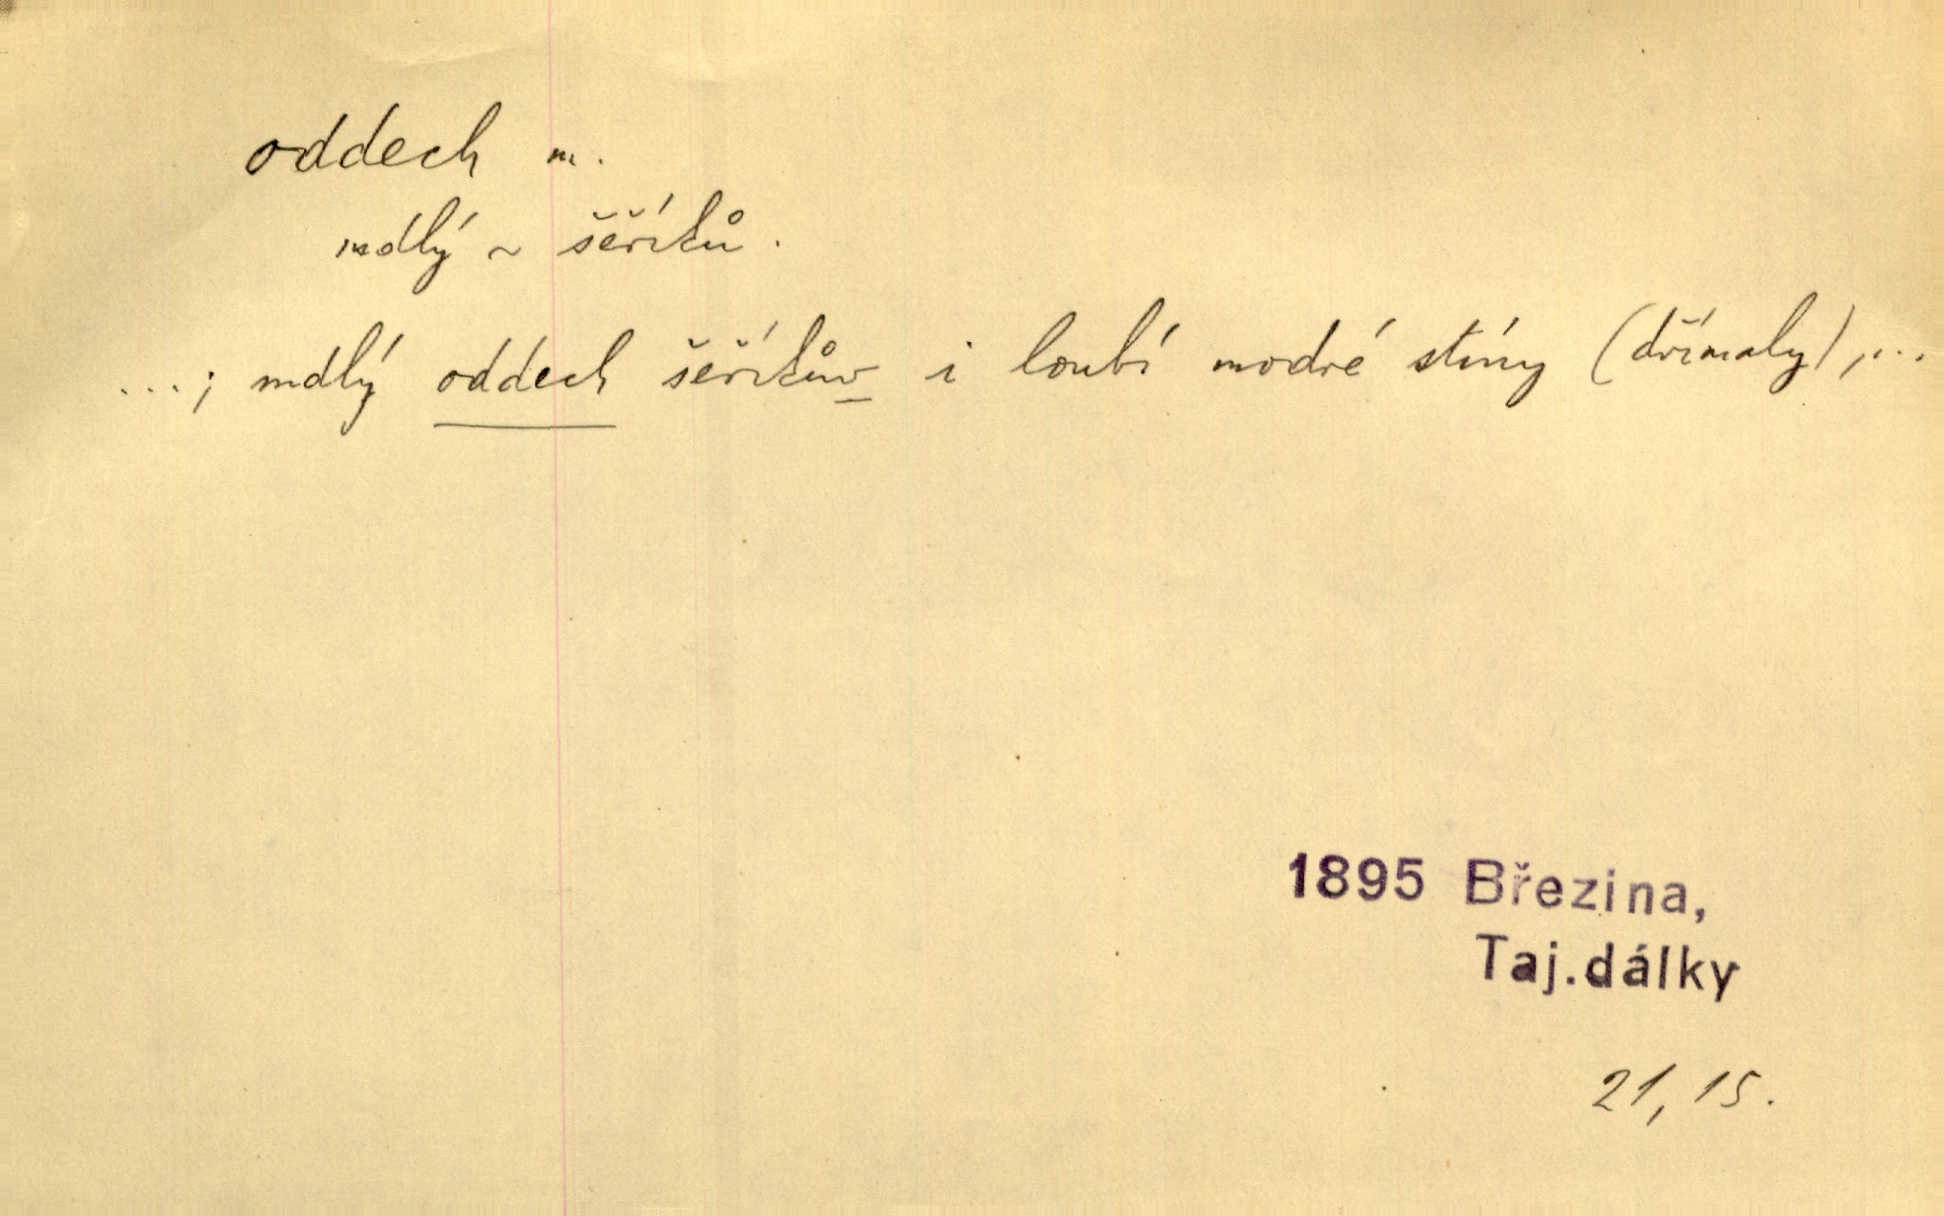 oddech m.
mdlý ~ šeříků.
...; mdlý oddech šeříkův i loubí modré stíny (dřímaly),...
1895 Březina,
Taj.dálky
21, 15.